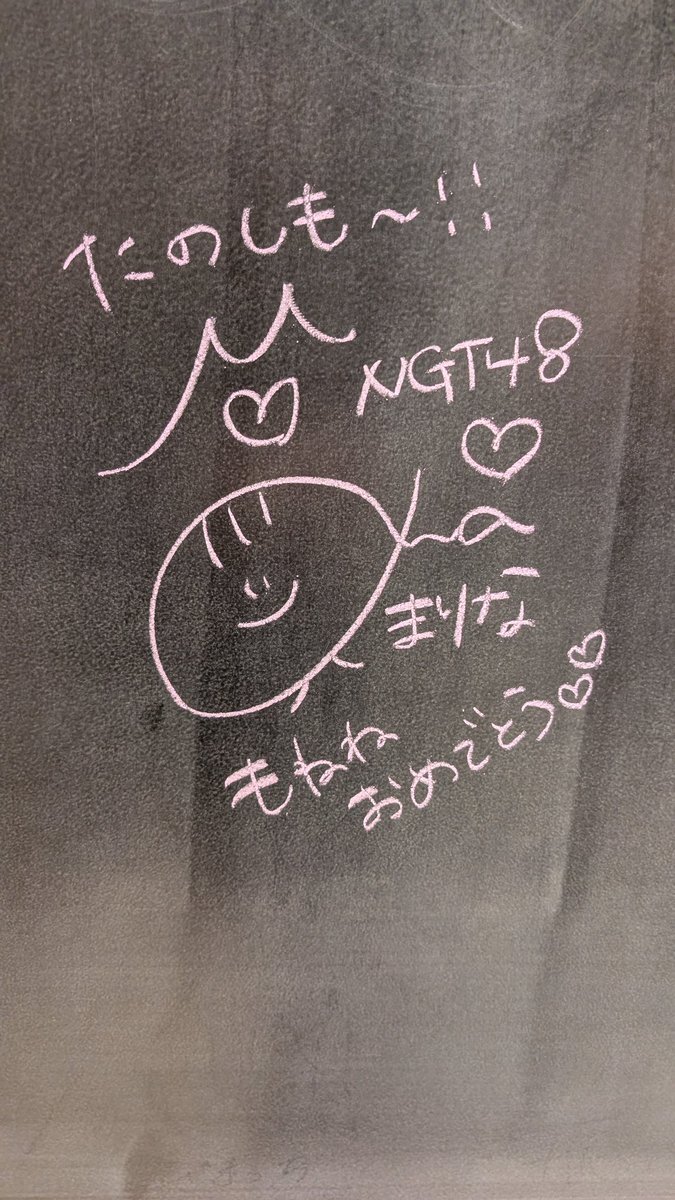 たのしも〜!!
NGT48
まりな
もねね
おめでとう